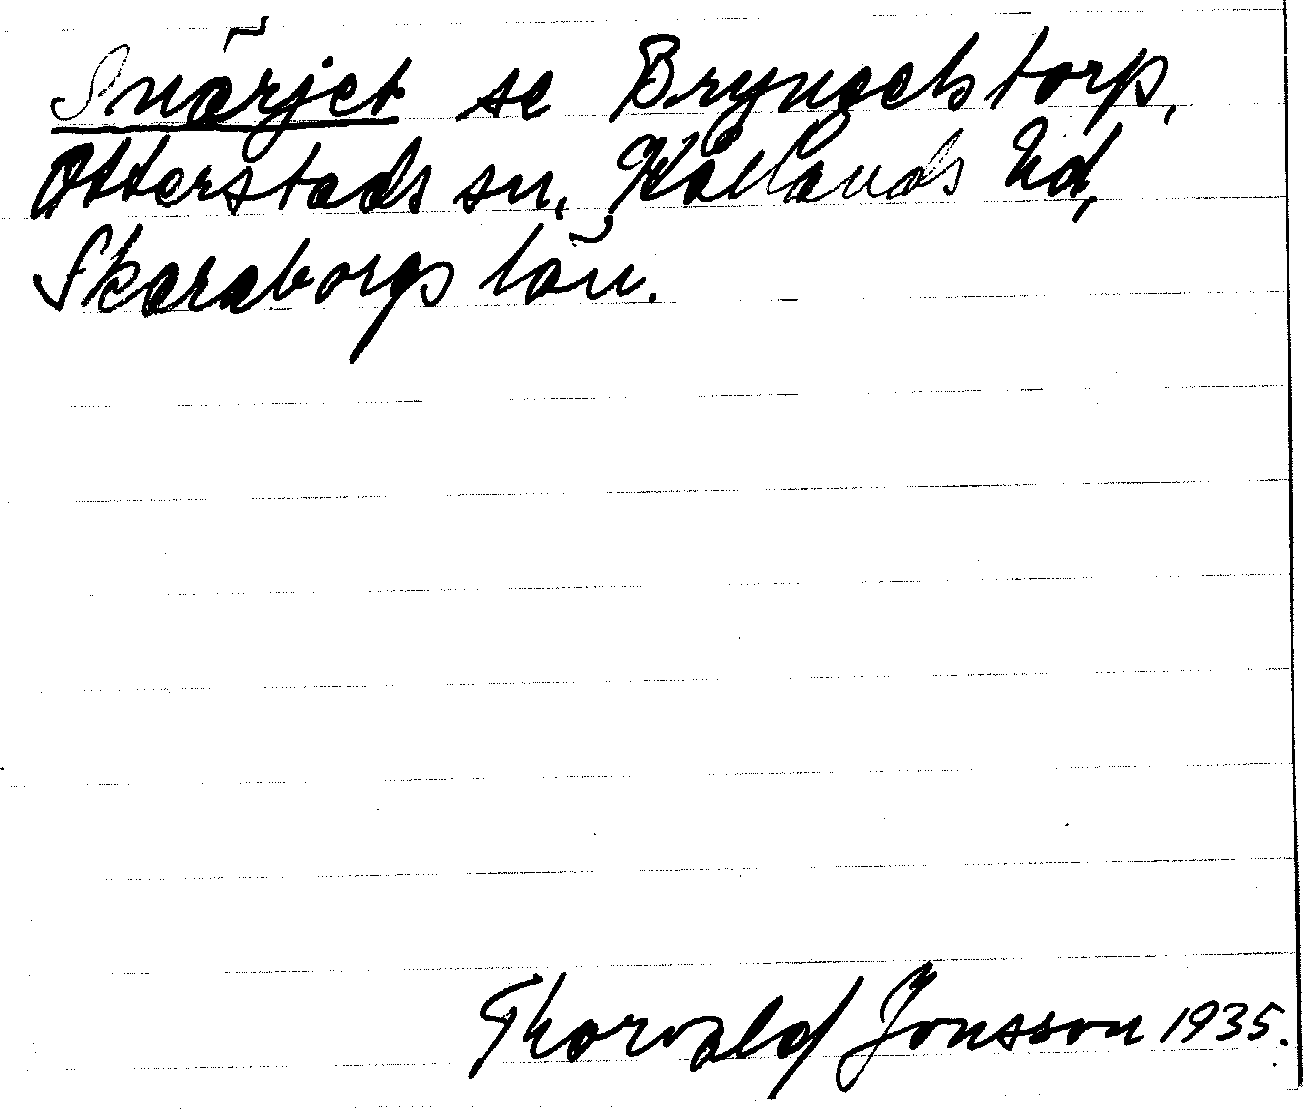 Snärjet se Bryngelstorp,
Otterstads sn, Kållands hd,
Skaraborgs län.
Thorvald Jonsson 1935.